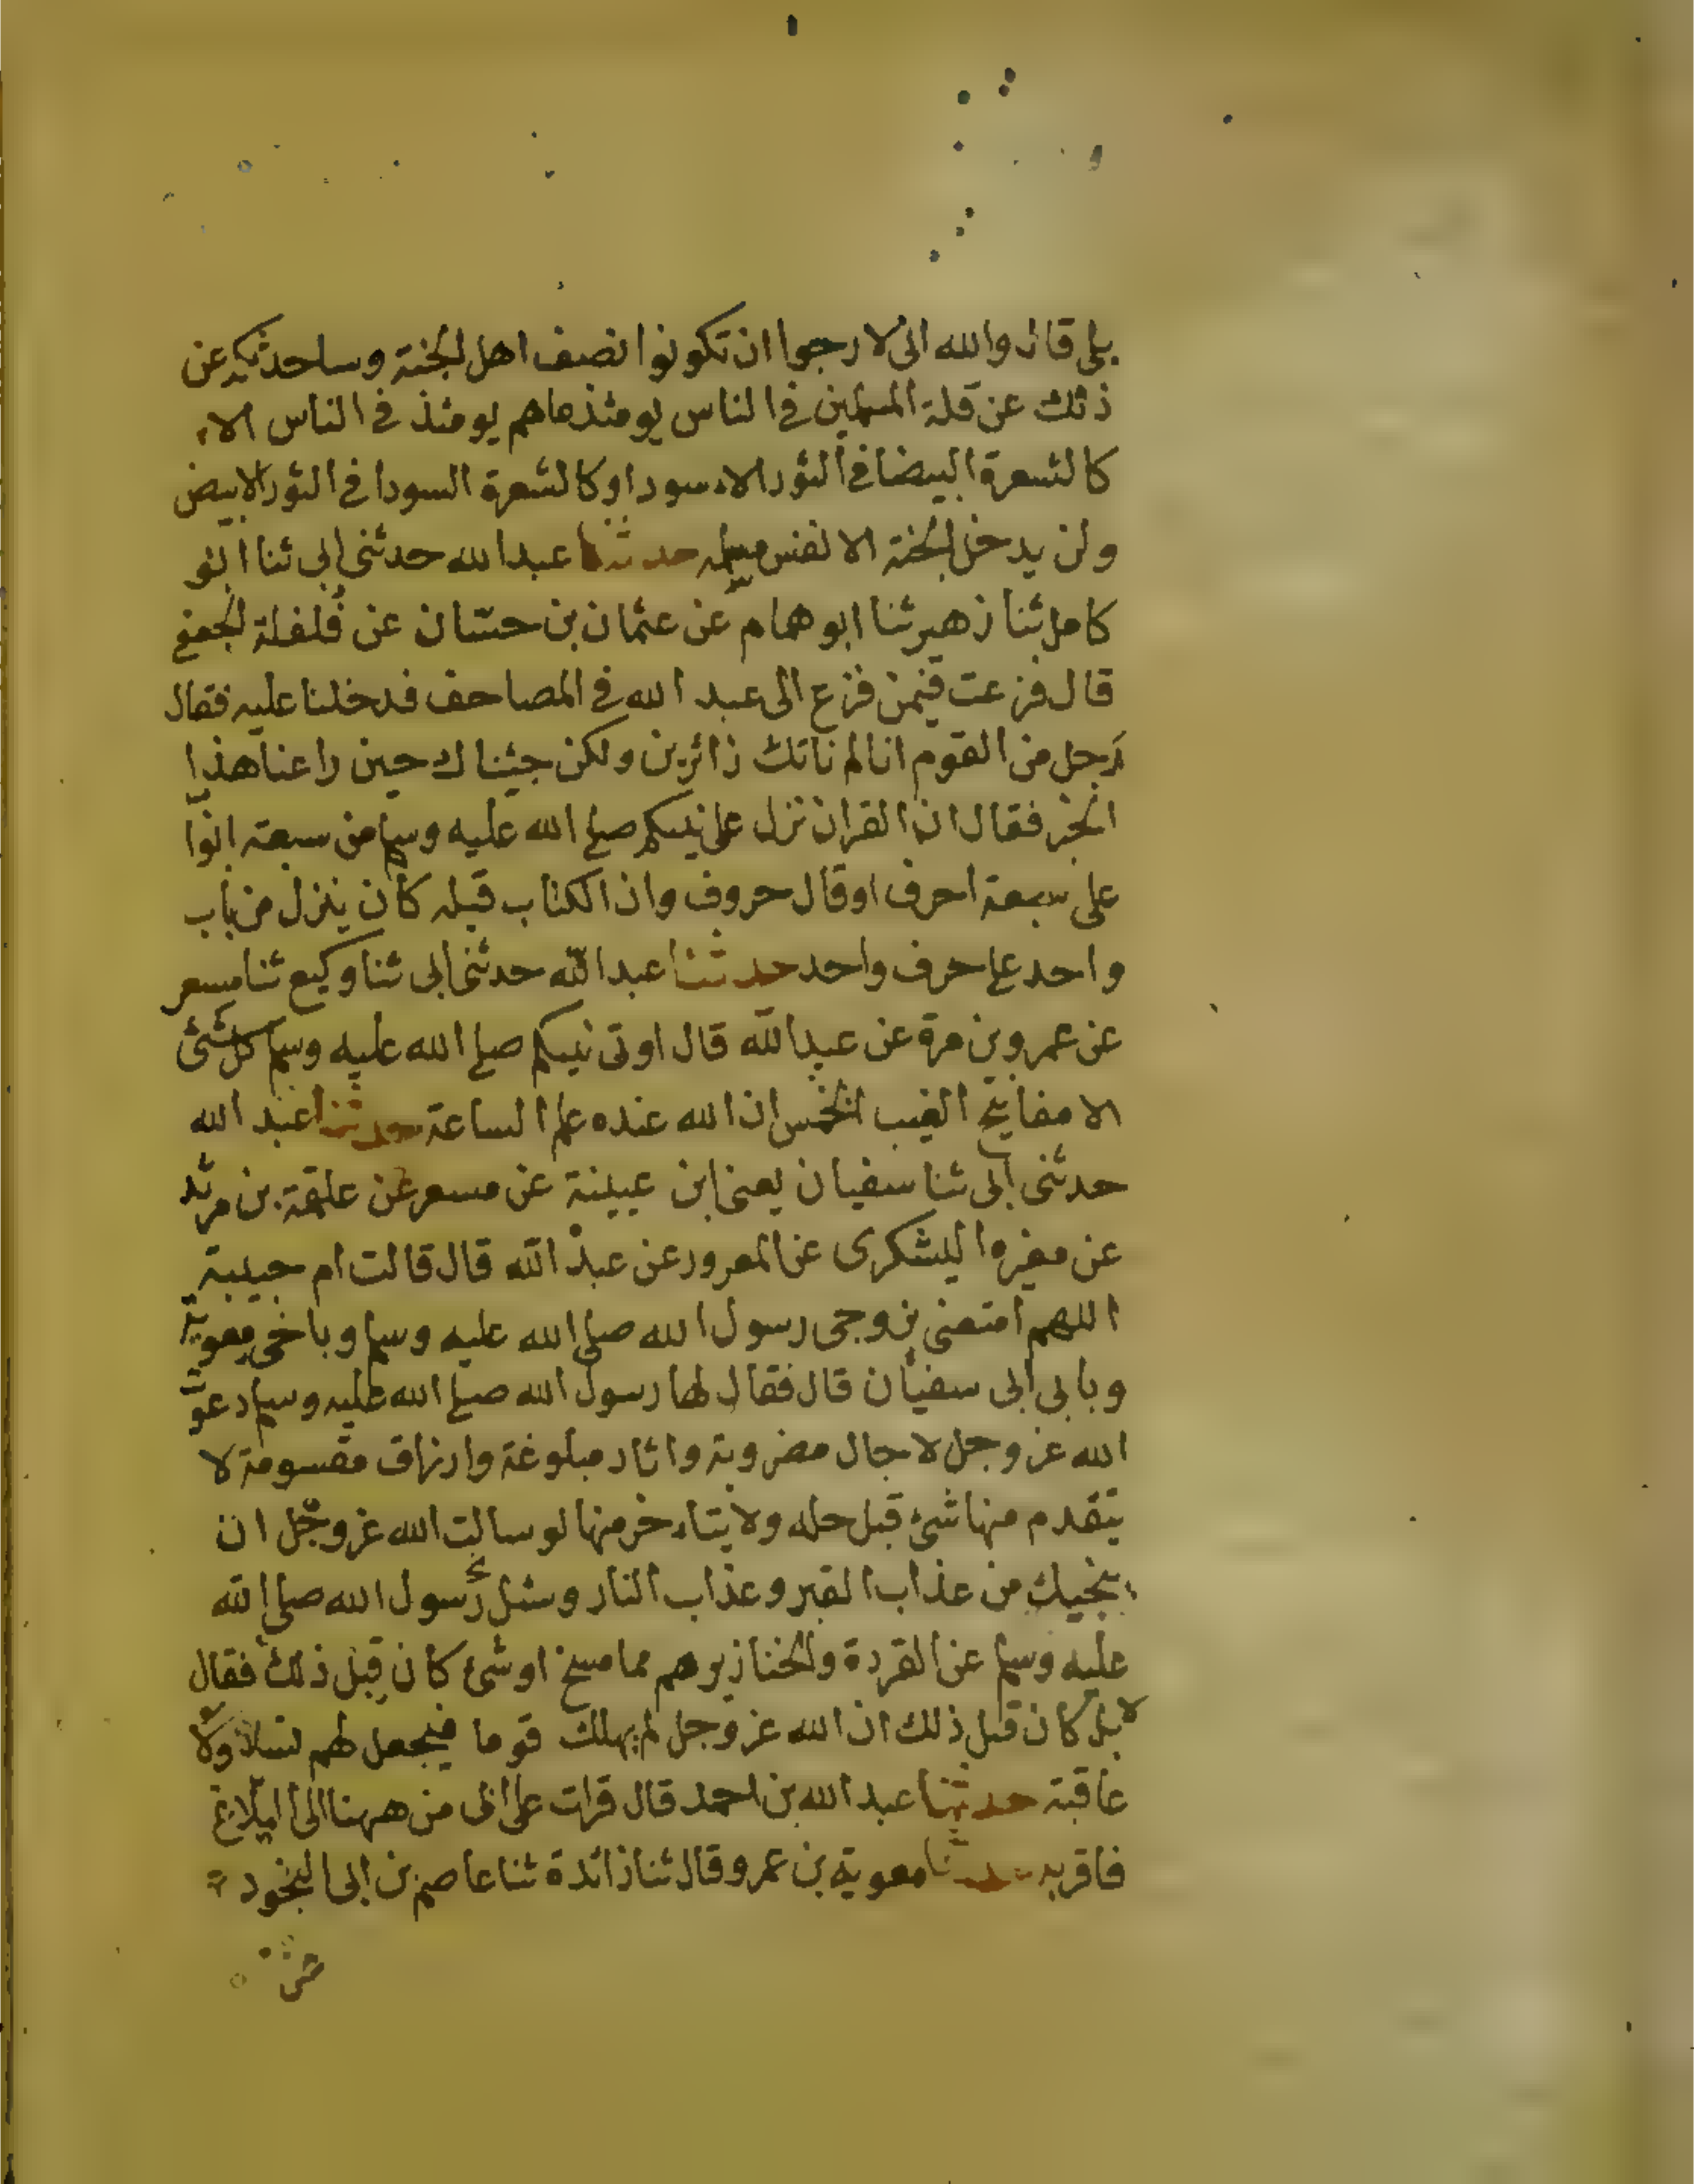 بلى قال والله انى لا رجوا ان تكونوا نصف اهل الجنة وساحدثكم عن
ذلك عن قلة المسلمين فى الناس يومئذ ماهم يومئذ فى الناس الا
كالشعرة البيضا فى الثور الاسود او كالشعرة السودا فى الثور الابيض
ولن يدخل الجنة الا نفس مسلمه حدثنا عبد الله حدثنى ابى ثنا ابو
كامل ثنا زهير ثنا ابو همام عن عثمان بن حسّان عن فلفلة الجعفى
قال فزعت فيمن فزع الى عبد الله فى المصاحف فدخلنا عليه فقال
رجل من القوم انا لم ناتك زائرين ولكن جئناك حين راعنا هذا
الخبر فقال ان القران نزل على نبيكم صلى الله عليه وسلم من سبعة ابواب
على سبعة احرف او قال حروف وان الكتاب قبله كان ينزل من باب
واحد على حرف واحد حدثنا عبد الله حدثنى ابى ثنا وكيع ثنا مسعر
عن عمرو بن مرة عن عبد الله قال اوتى نبيكم صلى الله عليه وسلم كل شئ
الا مفاتيح الغيب الخمس ان الله عنده علم الساعة حدثنا عبد الله
حدثنى ابى ثنا سفيان يعنى ابن عيينة عن مسعر عن علقمة بن مرثد
عن مغيره اليشكرى عن المعرور عن عبد الله قال قالت ام حبيبة
اللهم امتعنى بزوجى رسول الله صلى الله عليه وسلم وباخى معوية
وبابى ابى سفيان قال فقال لها رسول الله صلى الله عليه وسلم دعوت
الله عز وجل لاجال مضروبة واثار مبلوغة وارزاق مقسومة لا
يتقدم منها شئ قبل حله ولا يتاخر منها لو سالت الله عز وجل ان
ينجيك من عذاب القبر وعذاب النار وسئل رسول الله صلى الله
عليه وسلم عن القردة والخنازير هم مما مسخ او شئ كان قبل ذلك فقال
لا بل كان قبل ذلك ان الله عز وجل لم يهلك قوما فيجعل لهم نسلا ولا
عاقبة حدثنا عبد الله بن احمد قال قرات على ابى من ههنا الى البلاغ
فاقر به حدثنا معوية بن عمرو قال ثنا زائدة ثنا عاصم بن ابى النجود